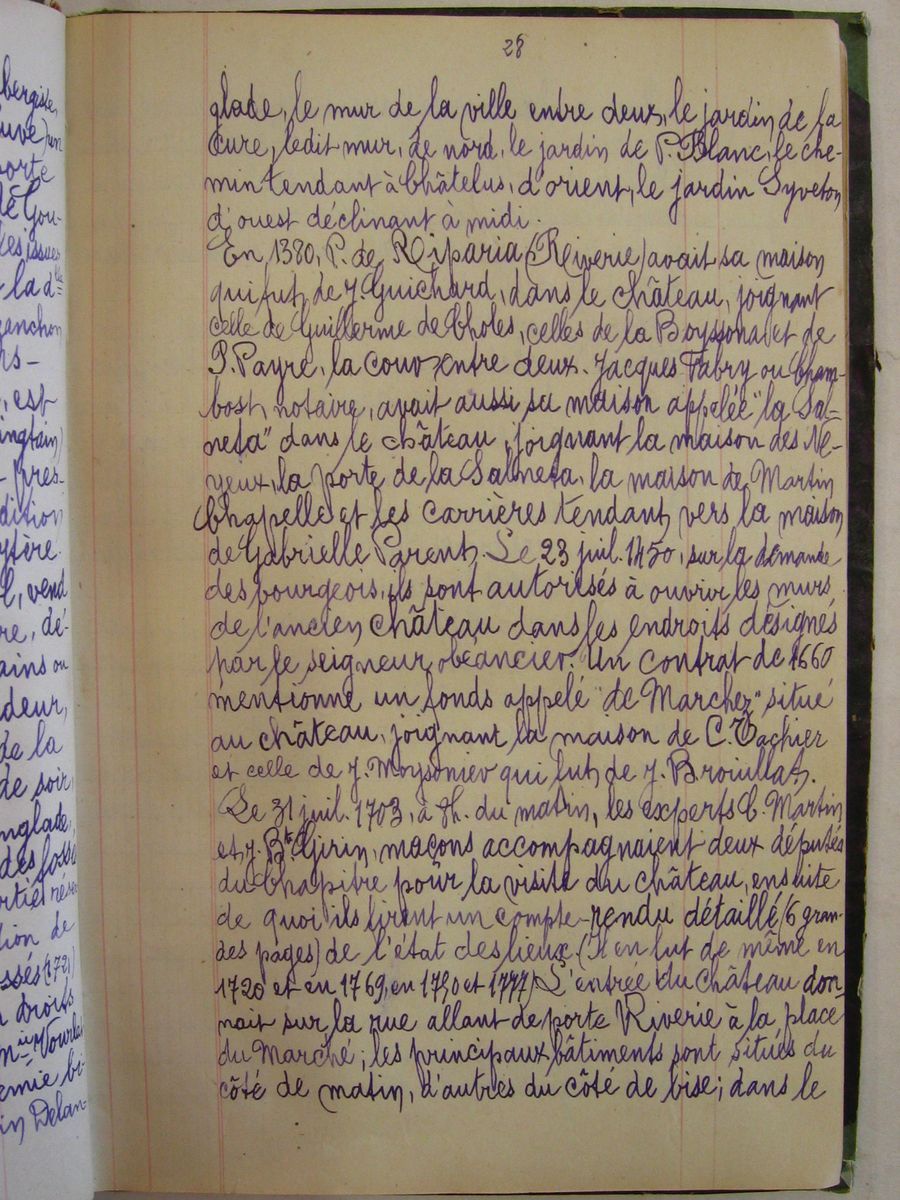 28
glade, le mur de la ville entre deux, le jardin de la
cure, ledit mur, de nord, le jardin de P. Blanc, le che-
min tendant à Châtelus, d'orient, le jardin Syveton
d'ouest déclinant à midi.
En 1380, P. de Riparia (Riverie) avait sa maison
qui fut de J. Guichard, dans le château, joignant
celle de Guillerme de Choles, celles de la Boyssona et de
P. Payre, la cour entre deux. Jacques Fabry ou Cham-
bost, notaire, avait aussi sa maison appelée "la Sal-
neta" dans le château, joignant la maison des Né-
yeux, la porte de la Salneta, la maison de Martin
Chapelle et les carrières tendant vers la maison
de Gabrielle Parent. Le 23 juil. 1450, sur la demande
des bourgeois, ils sont autorisés à ouvrir les murs
de l'ancien château dans les endroits désignés
par le seigneur obéancier. Un contrat de 1660
mentionne un fonds appelé "de Marchez" situé
au château, joignant la maison de C. Vachier
et celle de J. Moysonier qui fut de J. Broiullat.
Le 31 juil. 1703, à 8h. du matin, les experts C. Martin
et J. Bt Girin, maçons accompagnaient deux députés
du Chapitre pour la visite du château, ensuite
de quoi ils firent un compte-rendu détaillé (6 gran-
des pages) de l'état des lieux (Il en fut de même en
1720 et en 1769, en 1790 et 1777) L'entrée du château don-
nait sur la rue allant de porte Riverie à la place
du Marché; les principaux bâtiments sont situés du
côté de matin, d'autres du côté de bise; dans le